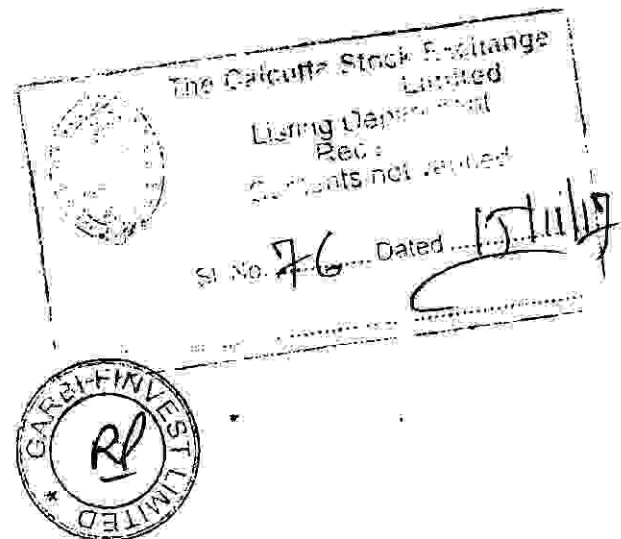 The Calcutta Stock Exchange
Limited
Listing Department
Contents not verified
Sl. No. 76 Dated 15/11/17
GARBI FINVEST LIMITED
RP